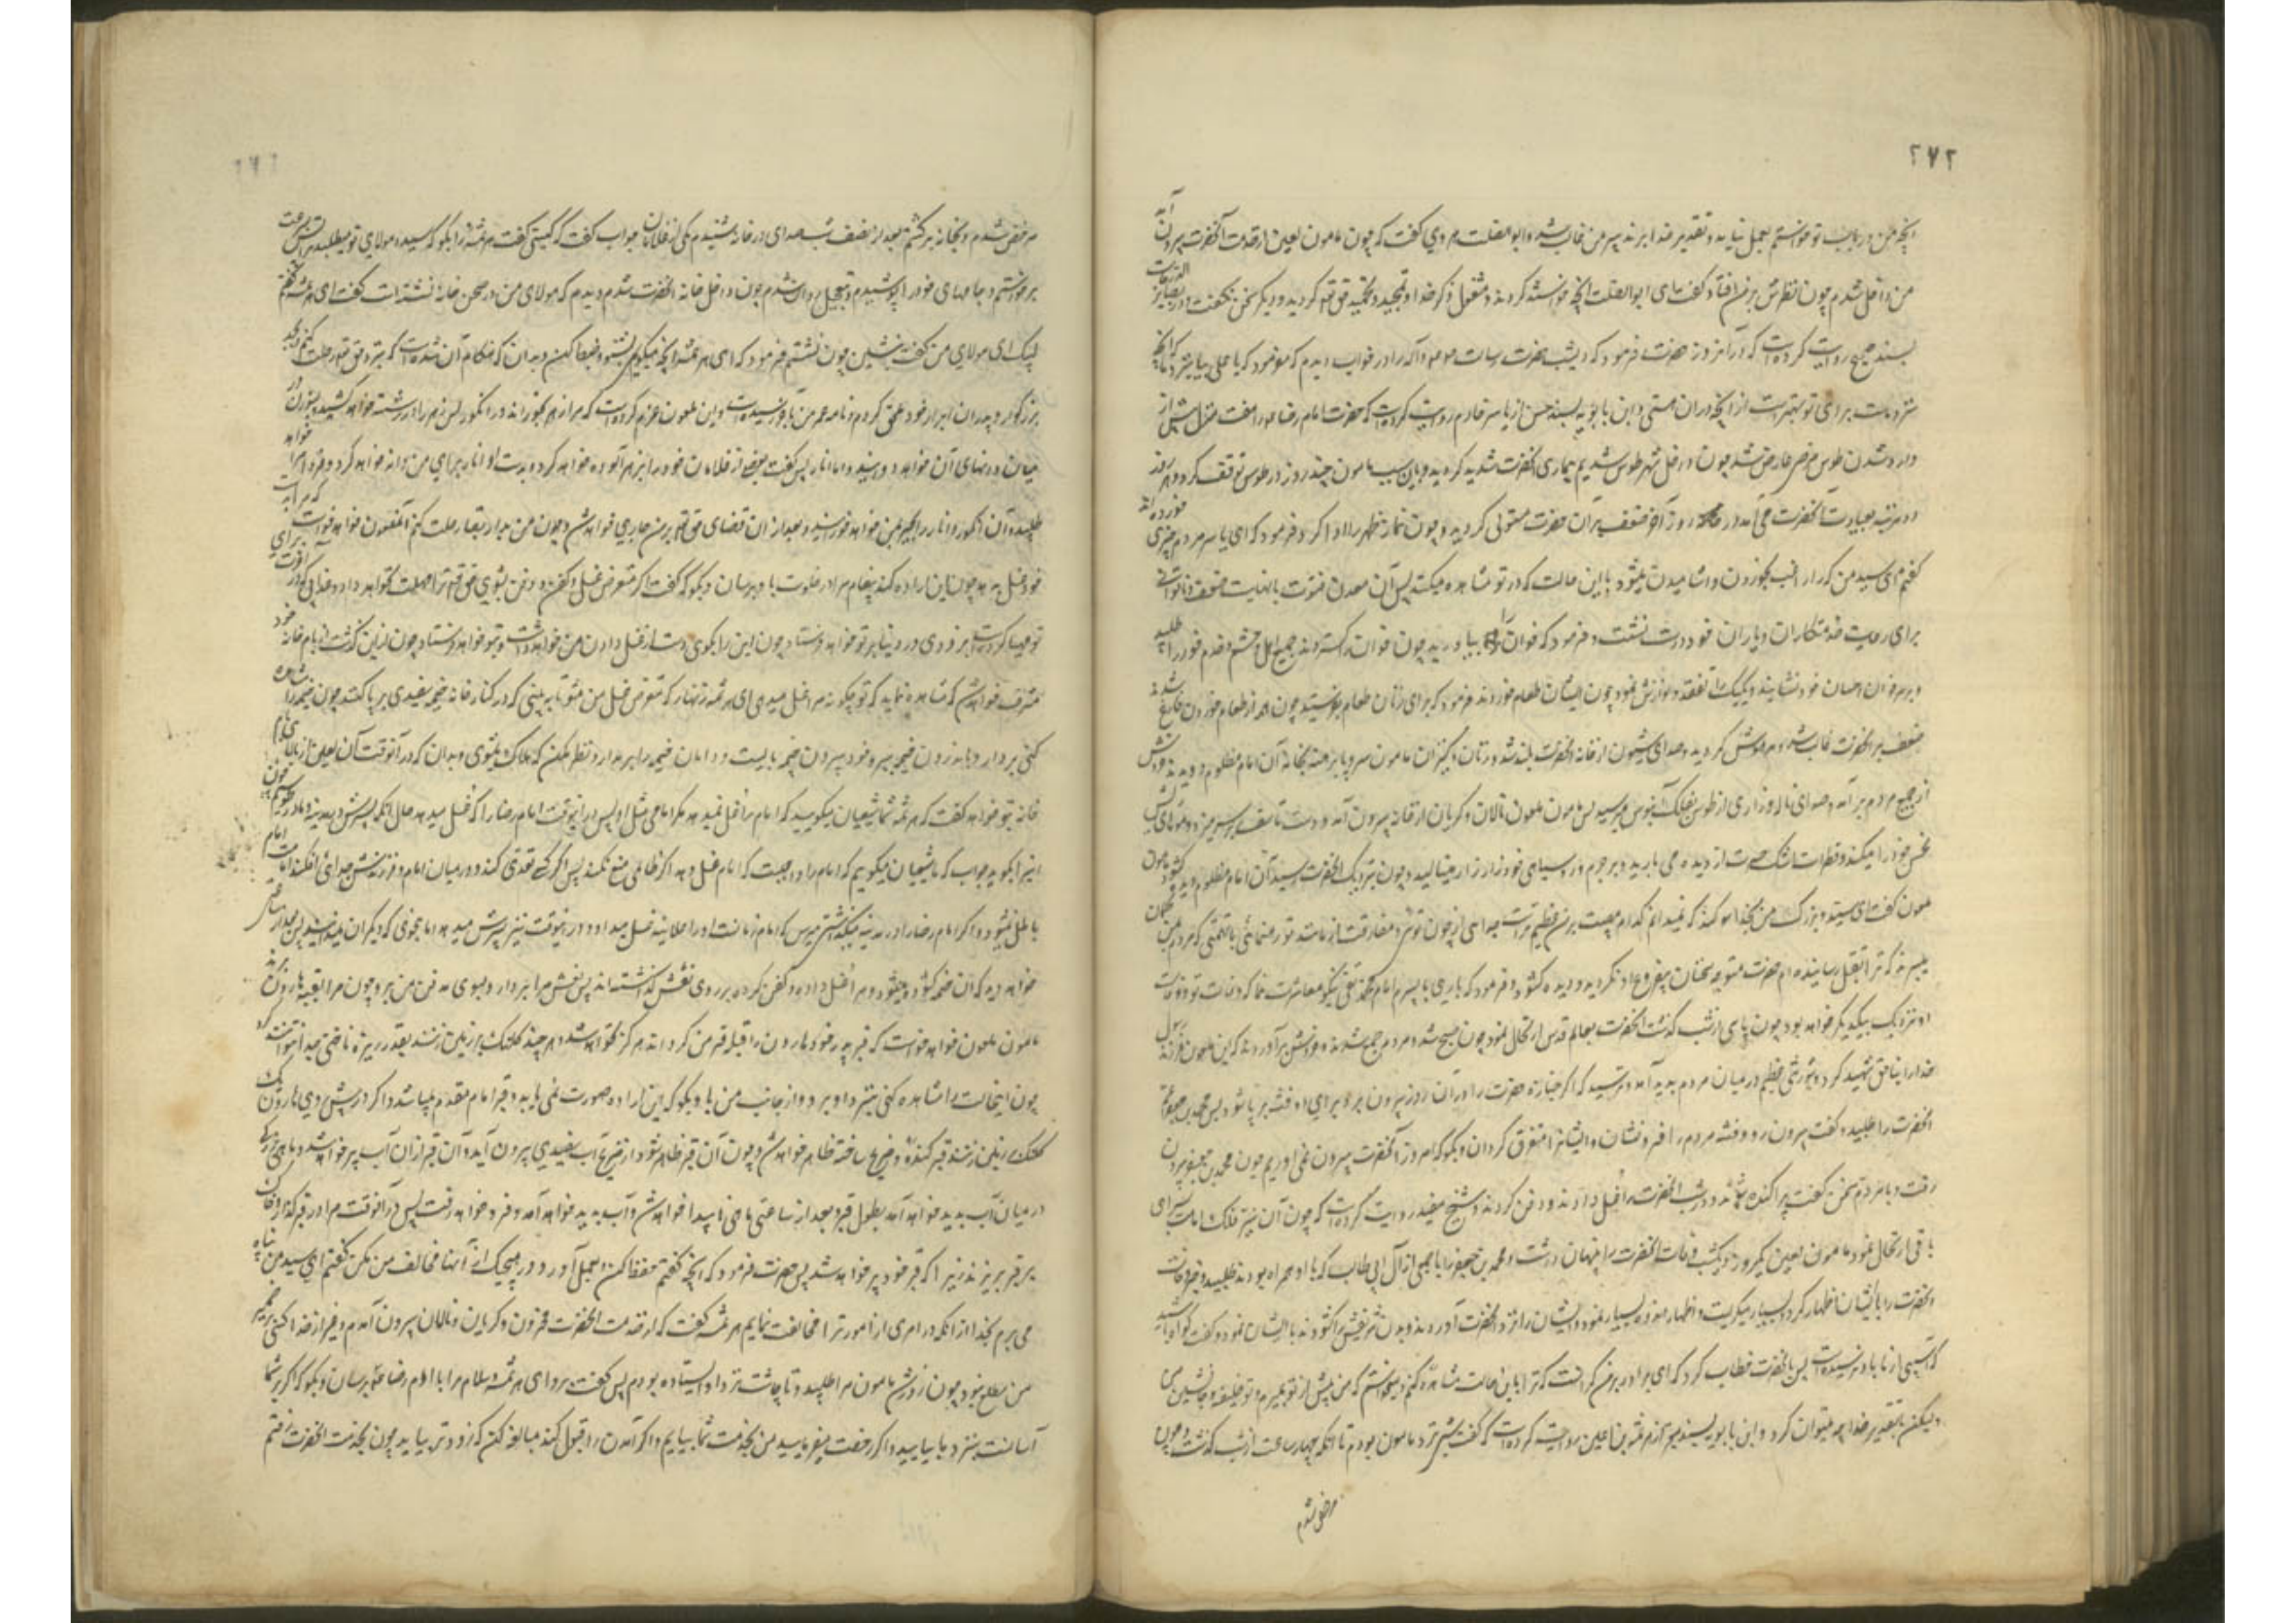 ۲۷۲
آنچه من در باب تو خواستم بعمل نیاید و تقدیر خدا برند پس من غالب شد و ابوالصلت هروی گفت که چون مامون لعین از خدمت آنحضرت بیرون آمد
من داخل شدم چون نظرش بر من افتاد گفت ای ابوالصلت آنچه خواستند کردند و مشغول ذکر خدا و تمجید و تحمید حق تعم گردید و دیگر سخن نگفت و در بصایر الدرجات
بسند صحیح روایت کرده است که در آنروز حضرت فرمود که دیشب حضرت رسالت صلعم و آله را در خواب دیدم که میفرمود که یا علی بیا بنزد ما که آنچه
نزد ماست برای تو بهتر است از آنچه در آن هستی و ابن بابویه بسند حسن از یاسر خادم روایت کرده است که حضرت امام رضا را هفت منزل پیش از
وارد شدن طوس مرض عارض شد چون داخل شهر طوس شدیم بیماری آنحضرت شدید گردید و باین سبب مامون چند روز در طوس توقف کرد و هر روز
دو مرتبه بعیادت آنحضرت می آمد در روز آخر ضعف بر آن حضرت مستولی گردید و چون نماز ظهر را ادا کرد فرمود که ای یاسر مردم چیزی خورده اند
گفتم ای سید من که را رغبت بخوردن و آشامیدن میشود با این حالت که در تو مشاهده میکنند پس آن معدن فتوت با نهایت ضعف و ناتوانی
برای رعایت خدمتکاران و یاران خود درست نشست و فرمود که خوان را بیاورید چون خوان گستردند جمیع اهل و حشم و خدم خود را طلبید
و بر سر خوان احسان خود نشانید و یک یک را تفقد و نوازش نمود چون ایشان طعام خوردند فرمود که برای زنان طعام بفرستید چون همه از طعام خوردن فارغ شدند
ضعف بر آنحضرت غالب شد و مدهوش گردید و صدای شیون از خانه آنحضرت بلند شد و زنان و کنیزان مامون سر و پا برهنه بخانه آن امام مظلوم دویدند و خروش
از جمیع مردم بر آمد و صدای ناله و زاری از طوس بفلک آبنوس میرسید پس مامون ملعون نالان و گریان از خانه بیرون آمد و دست تاسف بر سر میزد و موهای ریش
نحس خود را میکند و قطرات اشک حسرت از دیده می بارید و بر جرم و رو سیاهی خود زار زار مینالید و چون بنزدیک آنحضرت رسید آن امام مظلوم دیده گشود مامون
ملعون گفت ای سید و بزرگ من بخدا سوگند که نمیدانم کدام مصیبت بر من عظیم تر است جدائی از چون تو پیشوائی و مفارقت از مانند تو رهنمائی یا تهمتی که مردم بمن گمان
میبرند که ترا بقتل رسانیده ام حضرت متوجه سخنان بیفروغ او نگردید و دیده گشود و فرمود که باری با پسرم امام محمد تقی نیکو معاشرت نما که وفات تو و وفات
او نزدیک بیکدیگر خواهد بود چون پاره‌ای از شب گذشت آنحضرت بعالم قدس ارتحال نمود چون صبح شد مردم جمع شدند و خروش بر آوردند که این ملعون فرزند رسول
خدا را بناحق شهید کرد و شورش عظیم در میان مردم پدید آمد و ترسید که اگر جنازه حضرت را در آن روز بیرون برد برای او فتنه بر پا شود پس محمد بن جعفر عم
آنحضرت را طلبید و گفت بیرون رو و فتنه مردم را فرو نشان و ایشانرا متفرق گردان و بگو که امروز آنحضرت بیرون نمی آوریم چون محمد بن جعفر بیرون
رفت و با مردم سخن گفت پراکنده شدند و در شب آنحضرت را غسل دادند و دفن کردند و شیخ مفید روایت کرده است که چون آن نیر فلک امامت بسرای
باقی ارتحال نمود مامون لعین یکروز و یکشب وفات آنحضرت را پنهان داشت و محمد بن جعفر را با جمعی از آل ابی طالب که با او همراه بودند طلبید و خبر وفات
آنحضرت را بایشان اظهار کرد و بسیار میگریست و اظهار حزن بسیار نمود و ایشان را نزد آنحضرت آورد و بدن شریفش را گشود و بایشان نمود و گفت گواه باشید
که آسیبی از ما باو نرسیده است پس بآنحضرت خطاب کرد که ای برادر بر من گران است که ترا باین حالت مشاهده کنم و میخواستم که من پیش از تو بمیرم و تو خلیفه و جانشین من باشی
ولیکن با تقدیر خدا چه میتوان کرد و ابن بابویه بسند معتبر از هرثمة بن اعین روایت کرده است که گفت شبی نزد مامون بودم تا آنکه چهار ساعت از شب گذشت و چون
مرخص شدم
مرخص شدم و بخانه برگشتم بعد از نصف شب صدای در خانه شنیدم یکی از غلامان جواب گفت که کیستی گفت هرثمه را بگو که سید و مولای تو میطلبد پس بسرعت
برخواستم و جامهای خود را پوشیدم و بتعجیل روان شدم چون داخل خانه آنحضرت شدم دیدم که مولای من در صحن خانه نشسته است گفت ای هرثمه گفتم
لبیک ای مولای من گفت بنشین چون نشستم فرمود که ای هرثمه آنچه میگویم بشنو و ضبط کن و بدان که هنگام آن شده است که بنزد حق تعم رحلت کنم و بجد
بزرگوار و پدران ابرار خود ملحق گردم و نامه عمر من بآخر رسیده است و این ملعون عزم کرده است که مرا زهر بخوراند در انگور و انار پس زهر را در رشته خواهد کشید و بسوزن در
میان دانهای آن خواهد دوانید و اما انار پس گفت بعضی از غلامان خود را بزهر آلوده خواهد کرد و بدست او انار برای من دانه خواهد کرد و فردا مرا خواهد
طلبید و آن انگور و انار را بجبر بمن خواهد خورانید و بعد از آن قضای حق تعم بر من جاری خواهد شد و چون من بدار بقا رحلت کنم آنملعون خواهد خواست که مرا بدست
خود غسل بدهد چون این اراده کند پیغام مرا در خلوت باو برسان و بگو که گفت اگر متعرض غسل و کفن و دفن من بشوی حق تعم ترا مهلت نخواهد داد و عذابی که در آخرت برای
تو مهیا کرده است بزودی در دنیا بر تو خواهد فرستاد چون این را بگوی دست از غسل دادن من خواهد داشت و بتو خواهد گذاشت چون ازین گذشت از بام خانه خود
مشرف خواهد شد که مشاهده نماید که تو چگونه مرا غسل میدهی ای هرثمه زنهار که متعرض غسل من مشو تا ببینی که در کنار خانه خیمه سفیدی بر پا کنند چون خیمه را مشاهده
کنی مرا بردار و باندرون خیمه ببر و خود بیرون خیمه بایست و دامان خیمه را بر مدار و نظر مکن که هلاک میشوی و بدان که در آنوقت آن لعین از بام
خانه بتو خواهد گفت که ای هرثمه شما شیعیان میگویید که امام را غسل نمیدهد مگر امامی مثل او پس در اینوقت امام رضا را که غسل میدهد و حال آنکه پسرش در مدینه و ما در طوسیم چون
این را بگوید جواب بگو ما شیعیان میگوییم که امام را واجب است که امام غسل دهد اگر ظالمی منع نکند پس اگر کسی تعدی کند و در میان امام و فرزندش جدائی افکند امامت امام
باطل نمیشود و اگر امام رضا را در مدینه میگذاشتی پسرش که امام زمانست او را علانیه غسل میداد و در اینوقت نیز پسرش غسل میدهد اما بنحوی که دیگران نمیدانند پس بعد از ساعتی
خواهی دید که آن خیمه گشوده میشود و مرا غسل داده و کفن کرده بر روی نعش گذاشته اند پس نعش مرا بردار و بسوی مدفن من ببر و چون مرا بقبه هارون برند
مامون ملعون خواهد خواست که قبر پدر خود هارون را قبله قبر من گرداند و هرگز نخواهد شد هر چند کلنگ بر زمین زنند بقدر ریزه ناخنی جدا نتوانند کرد
چون اینحالت را مشاهده کنی بنزد او برو و از جانب من باو بگو که این اراده صورت نمی یابد و قبر امام مقدم میباشد و اگر در پیش روی هارون یک
کلنگ بر زمین زنند قبر کنده و ضریح ساخته ظاهر خواهد شد و چون آن قبر ظاهر شود از ضریح آب سفیدی بیرون آید و آن قبر از آن آب پر خواهد شد و ماهی بزرگی
در میان آب پدید خواهد آمد بطول قبر و بعد از ساعتی ماهی ناپیدا خواهد شد و آب پدید خواهد آمد و فرو خواهد رفت پس در آنوقت مرا در قبر گذار و خاک
بر قبر مریز زیرا که قبر خود پر خواهد شد پس حضرت فرمود که آنچه گفتم حفظ کن و بعمل آور و در هیچیک از آنها مخالفت من مکن گفتم ای سید من پناه
می برم بخدا از آنکه در امری از امور ترا مخالفت نمایم هرثمه گفت که از خدمت آنحضرت محزون و گریان و نالان بیرون آمدم و غیر از خدا کسی بر ضمیر
من مطلع نبود چون روز شد مامون مرا طلبید و تا چاشت نزد او ایستاده بودم پس گفت برو ای هرثمه و سلام مرا بامام رضا برسان و بگو که اگر بر شما
آسانست بنزد ما بیایید و اگر رخصت میفرمایید من بخدمت شما بیایم و اگر آمدن را قبول کند مبالغه کن که زودتر بیاید چون بخدمت آنحضرت رفتم